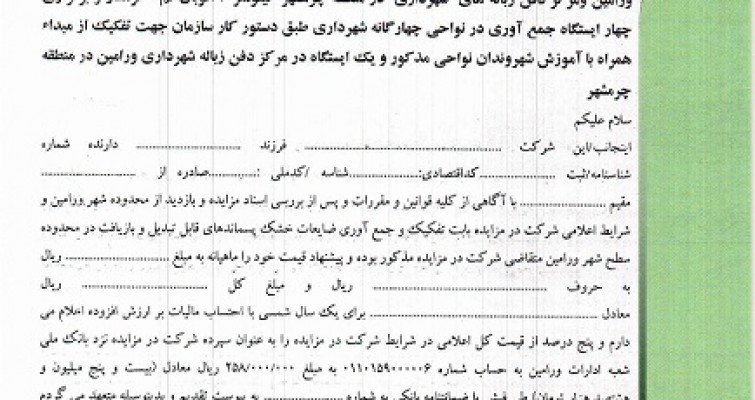 ورامین ومرکز دفن زباله های شهرداری در منطقه چرمشهر
چهار ایستگاه جمع آوری در نواحی چهارگانه شهرداری طبق دستور کار سازمان جهت تفکیک از مبداء
همراه با آموزش شهروندان نواحی مذکور و یک ایستگاه در مرکز دفن زباله شهرداری ورامین در منطقه
چرمشهر
سلام علیکم
اینجانب/این شرکت ........................ فرزند ........................ دارنده شماره
شناسنامه/ثبت ........................کداقتصادی:....................شناسه /کدملی :..............صادره از ........................
مقیم .................... با آگاهی از کلیه قوانین و مقررات و پس از بررسی اسناد مزایده و بازدید از محدوده شهر ورامین و
شرایط اعلامی شرکت در مزایده بابت تفکیک و جمع آوری ضایعات خشک پسماندهای قابل تبدیل و بازیافت در محدوده
سطح شهر ورامین متقاضی شرکت در مزایده مذکور بوده و پیشنهاد قیمت خود را ماهیانه به مبلغ .................... ریال
به حروف ........................ ریال و مبلغ کل ........................ ریال
معادل ........................ برای یک سال شمسی با احتساب مالیات بر ارزش افزوده اعلام می
دارم و پنج درصد از قیمت کل اعلامی در شرایط شرکت در مزایده را به عنوان سپرده شرکت در مزایده نزد بانک ملی
شعبه ادارات ورامین به حساب شماره ۰۱۱۰۱۵۹۰۰۰۰۰۶ به مبلغ ۲۵۸/۰۰۰/۰۰۰ ریال معادل (بیست و پنج میلیون و
هشتصد هزار تومان) طی فیش یا ضمانتنامه بانکی به شماره .................... به پیوست تقدیم و بدینوسیله متعهد می گردم